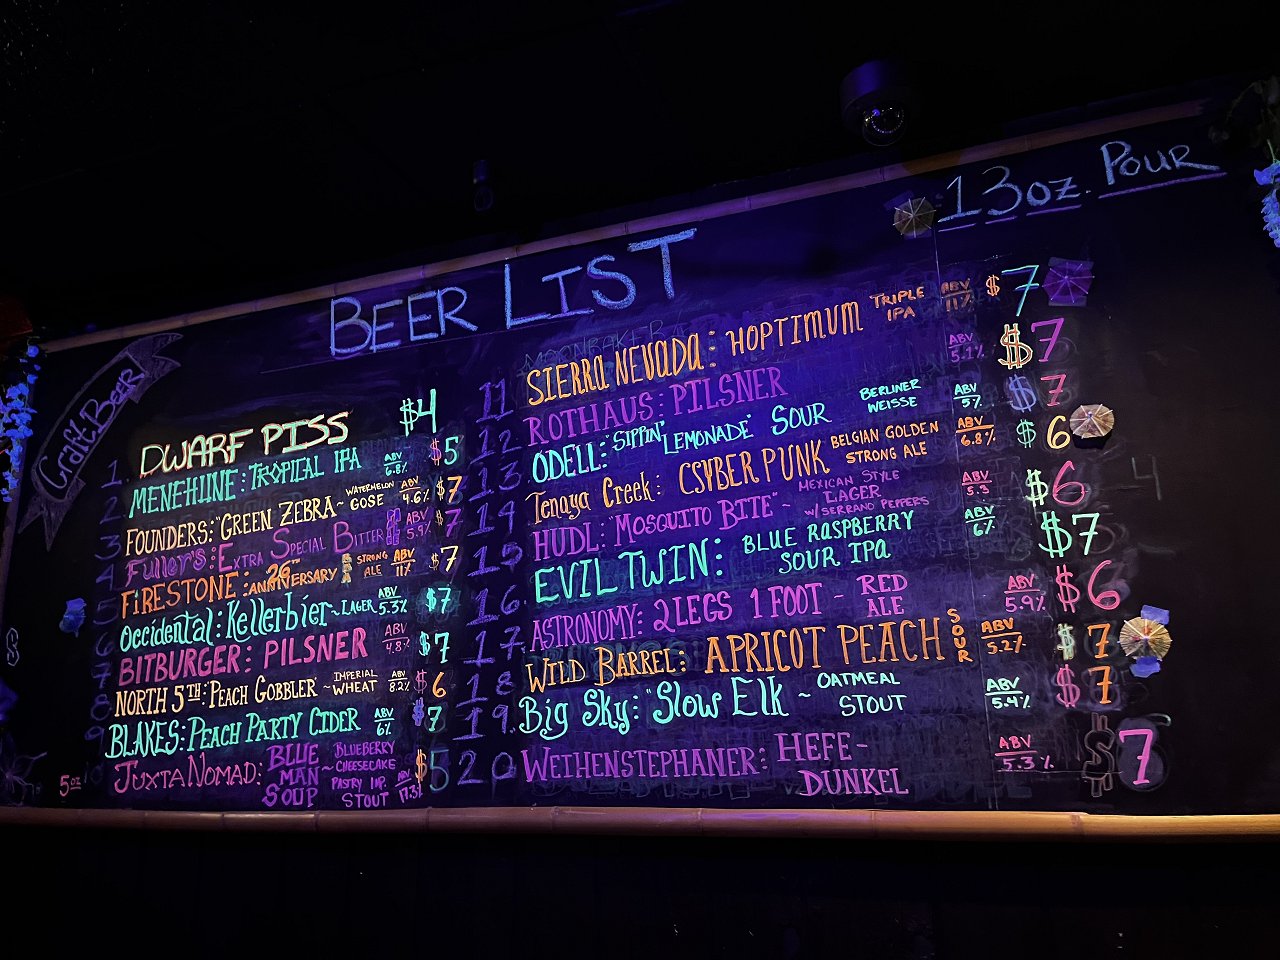 BEER LIST
13oz. POUR
Craft Beer
DWARF PISS $4
1. MENEHUNE: TROPICAL IPA ABV 6.8% $5
2 FOUNDERS: "GREEN ZEBRA ~ WATERMELON GOSE ABV 4.6% $7
3 Fuller's: EXTRA SPECIAL BITTER ABV 5.9% $7
4 FIRESTONE: 26TH ANNIVERSARY STRONG ALE ABV 11% $7
5 Occidental: Kellerbier ~ LAGER ABV 5.3% $7
6 BITBURGER: PILSNER ABV 4.8% $7
7 NORTH 5TH: PEACH GOBBLER ~ IMPERIAL WHEAT ABV 8.2% $6
8 BLAKES: PEACH PARTY CIDER ABV 6% $7
9
5oz 10 JUXTA NOMAD: BLUE MAN SOUP ~ BLUEBERRY CHEESECAKE PASTRY IMP. STOUT ABV $5
11 SIERRA NEVADA: HOPTIMUM TRIPLE IPA ABV 11% $7
12 ROTHAUS: PILSNER ABV 5.1% $7
13 ODELL: "SIPPIN' LEMONADE" SOUR BERLINER WEISSE ABV 5% $7
14 Tenaya Creek: CSYBER PUNK BELGIAN GOLDEN STRONG ALE ABV 6.8% $6
15 HUDL: "MOSQUITO BITE" ~ MEXICAN STYLE LAGER W/ SERRANO PEPPERS ABV 5.3 $6
16. EVIL TWIN: BLUE RASPBERRY SOUR IPA ABV 6% $7
17 ASTRONOMY: 2 LEGS 1 FOOT ~ RED ALE ABV 5.9% $6
18 WILD BARREL: APRICOT PEACH SOUR ABV 5.2% $7
19. Big Sky: "Slow Elk ~ OATMEAL STOUT ABV 5.4% $7
20 WEIHENSTEPHANER: HEFE-DUNKEL ABV 5.3% $7